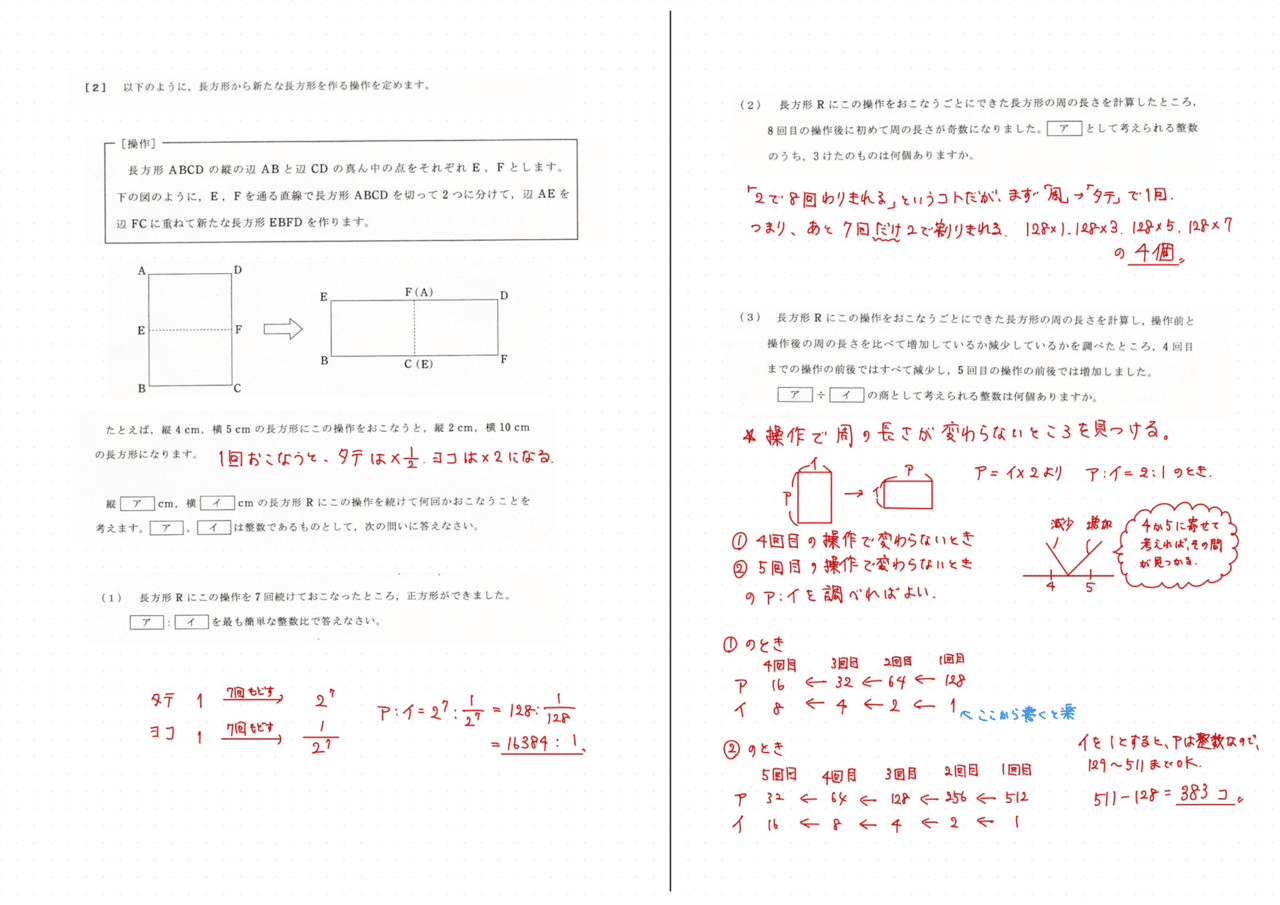 [2] 以下のように，長方形から新たな長方形を作る操作を定めます。
[操作]
長方形 ABCD の縦の辺 AB と辺 CD の真ん中の点をそれぞれ E，F とします。
下の図のように，E，F を通る直線で長方形 ABCD を切って 2 つに分けて，辺 AE を
辺 FC に重ねて新たな長方形 EBFD を作ります。
A D
E F
B C
E F(A) D
B C(E) F
たとえば，縦 4 cm，横 5 cm の長方形にこの操作をおこなうと，縦 2 cm，横 10 cm
の長方形になります。
1回おこなうと、タテは×1/2. ヨコは×2になる.
縦 ア cm，横 イ cm の長方形 R にこの操作を続けて何回かおこなうことを
考えます。ア，イ は整数であるものとして，次の問いに答えなさい。
(1) 長方形 R にこの操作を 7 回続けておこなったところ，正方形ができました。
ア：イ を最も簡単な整数比で答えなさい。
タテ 1 7回もどす→ 2^7
ヨコ 1 7回もどす→ 1/2^7
ア:イ=2^7:1/2^7=128:1/128
=16384:1
(2) 長方形 R にこの操作をおこなうごとにできた長方形の周の長さを計算したところ，
8 回目の操作後に初めて周の長さが奇数になりました。ア として考えられる整数
のうち，3 けたのものは何個ありますか。
「2で8回わりきれる」というコトだが、まず「周」→「タテ」で1回.
つまり、あと7回だけ2で割りきれる. 128×1.128×3. 128×5. 128×7
の 4個。
(3) 長方形 R にこの操作をおこなうごとにできた長方形の周の長さを計算し，操作前と
操作後の周の長さを比べて増加しているか減少しているかを調べたところ，4 回目
までの操作の前後ではすべて減少し，5 回目の操作の前後では増加しました。
ア ÷ イ の商として考えられる整数は何個ありますか。
* 操作で周の長さが変わらないところを見つける。
イ
ア
→
ア
イ
ア=イ×2より ア:イ=2:1のとき.
① 4回目の操作で変わらないとき
② 5回目の操作で変わらないとき
のア:イを調べればよい.
減少 増加
4 5
4か5に寄せて
考えれば、その間
が見つかる.
①のとき
4回目 3回目 2回目 1回目
ア 16 ← 32 ← 64 ← 128
イ 8 ← 4 ← 2 ← 1
←ここから書くと楽
②のとき
5回目 4回目 3回目 2回目 1回目
ア 32 ← 64 ← 128 ← 256 ← 512
イ 16 ← 8 ← 4 ← 2 ← 1
イを1とすると、アは整数なので、
129〜511までOK.
511−128=383コ。